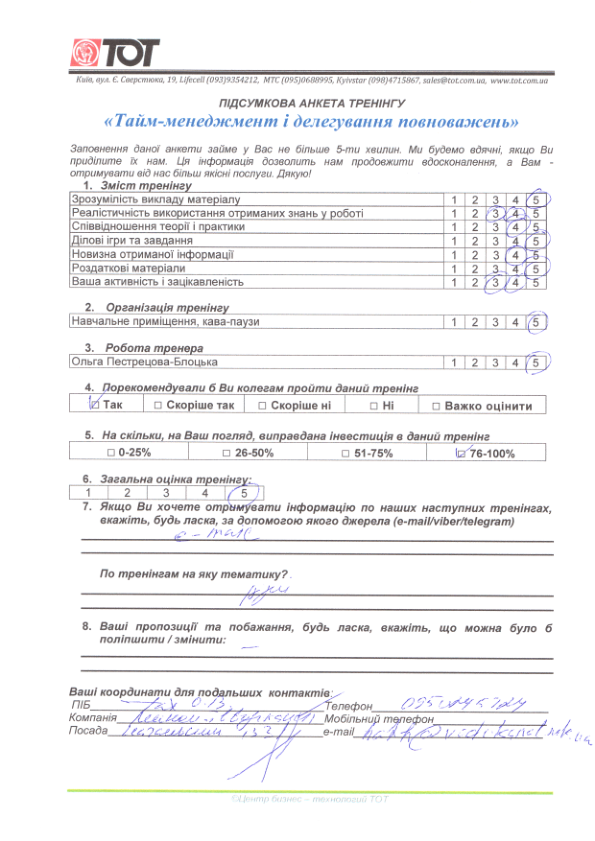 ТОТ
Київ, вул. Є. Сверстюка, 19, Lifecell (093)9354212, МТС (095)0688995, Kyivstar (098)4715867, sales@tot.com.ua, www.tot.com.ua
ПІДСУМКОВА АНКЕТА ТРЕНІНГУ
«Тайм-менеджмент і делегування повноважень»
Заповнення даної анкети займе у Вас не більше 5-ти хвилин. Ми будемо вдячні, якщо Ви
приділите їх нам. Ця інформація дозволить нам продовжити вдосконалення, а Вам -
отримувати від нас більш якісні послуги. Дякую!
1. Зміст тренінгу
Зрозумілість викладу матеріалу 1 2 3 4 5
Реалістичність використання отриманих знань у роботі 1 2 3 4 5
Співвідношення теорії і практики 1 2 3 4 5
Ділові ігри та завдання 1 2 3 4 5
Новизна отриманої інформації 1 2 3 4 5
Роздаткові матеріали 1 2 3 4 5
Ваша активність і зацікавленість 1 2 3 4 5
2. Організація тренінгу
Навчальне приміщення, кава-паузи 1 2 3 4 5
3. Робота тренера
Ольга Пестрецова-Блоцька 1 2 3 4 5
4. Порекомендували б Ви колегам пройти даний тренінг
☑ Так ☐ Скоріше так ☐ Скоріше ні ☐ Ні ☐ Важко оцінити
5. На скільки, на Ваш погляд, виправдана інвестиція в даний тренінг
☐ 0-25% ☐ 26-50% ☐ 51-75% ☑ 76-100%
6. Загальна оцінка тренінгу:
1 2 3 4 5
7. Якщо Ви хочете отримувати інформацію по наших наступних тренінгах,
вкажіть, будь ласка, за допомогою якого джерела (e-mail/viber/telegram)
По тренінгам на яку тематику?
8. Ваші пропозиції та побажання, будь ласка, вкажіть, що можна було б
поліпшити / змінити: —
Ваші координати для подальших контактів:
ПІБ Телефон
Компанія Мобільний телефон
Посада e-mail
©Центр бизнес – технологий ТОТ